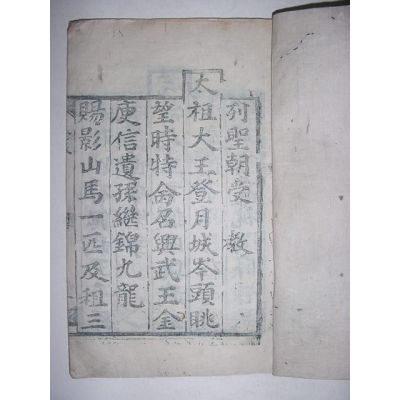 列聖朝受教
太祖大王登月城岑頭眺
望時特命名興武王金
庾信遺孫繼錦九龍
賜影山馬一匹及租三